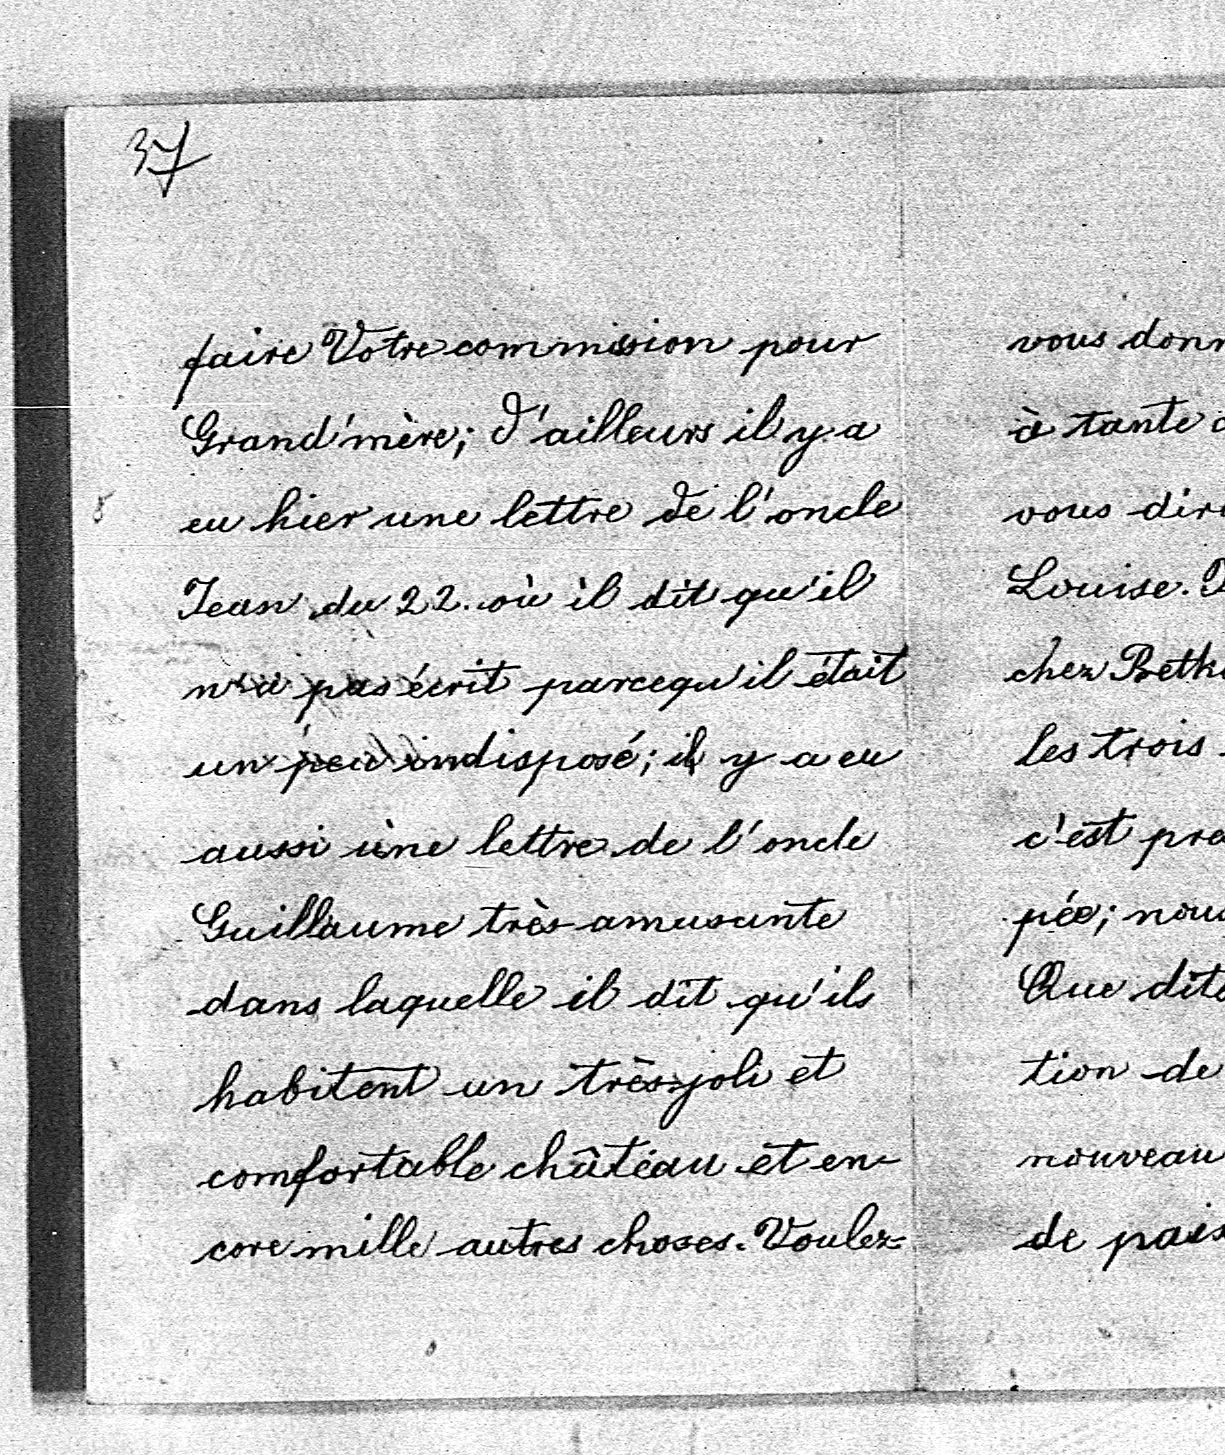 37
faire Votre commission pour
Grand'mère; d'ailleurs il y a
eu hier une lettre de l'oncle
Jean du 22. où il dit qu'il
n'a pas écrit parcequ'il était
un peu indisposé; il y a eu
aussi une lettre de l'oncle
Guillaume très amusante
dans laquelle il dit qu'ils
habitent un très joli et
comfortable château et en-
core mille autres choses. Voulez-
vous
à tante
vous
Louise.
chez
les trois
c'est
pée; nous
Que
tion de
nouveau
de